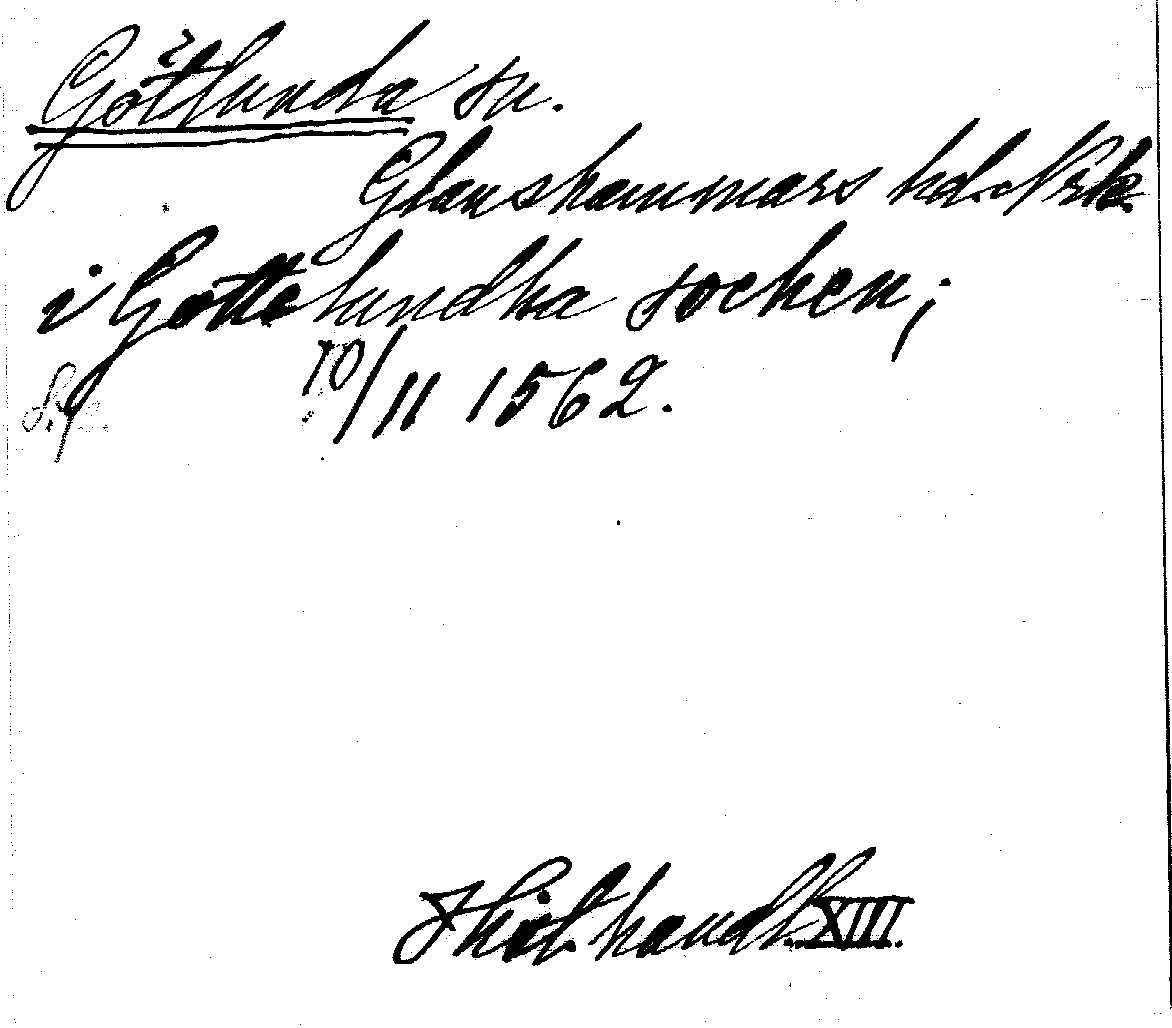 Götlunda sn.
Glanshammars hd. Nrk.
i Göttelundha sochen;
10/11 1562.
Hist. handl. XIII.